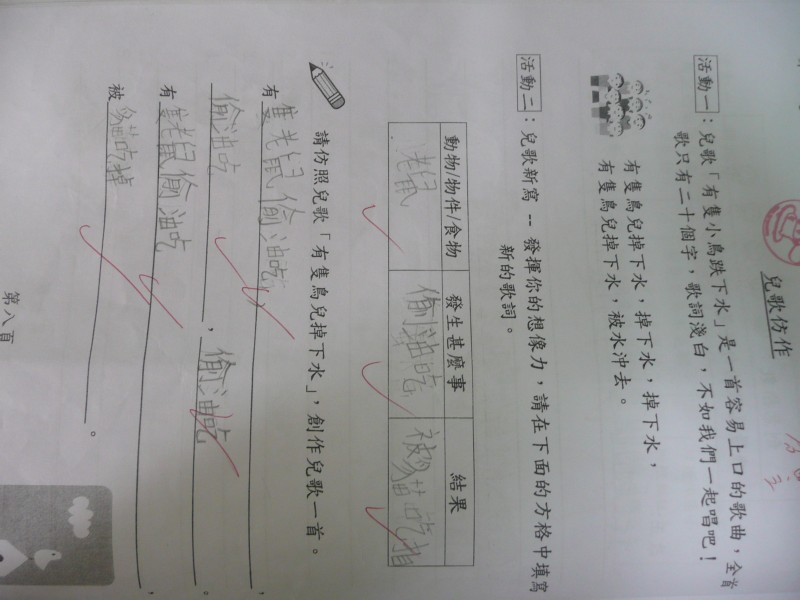 兒歌仿作
活動一：兒歌「有隻小鳥跌下水」是一首容易上口的歌曲，全首
歌只有二十個字，歌詞淺白，不如我們一起唱吧！
有隻鳥兒掉下水，掉下水，掉下水，
有隻鳥兒掉下水，被水沖去。
活動二：兒歌新寫 -- 發揮你的想像力，請在下面的方格中填寫
新的歌詞。
動物/物件/食物 發生甚麼事 結果
老鼠 偷油吃 被貓吃掉
請仿照兒歌「有隻鳥兒掉下水」，創作兒歌一首。
有隻老鼠偷油吃，
偷油吃，偷油吃。
有隻老鼠偷油吃，
被貓吃掉。
第八頁